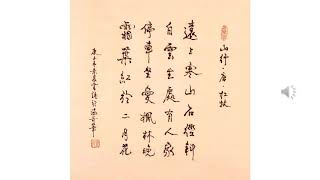 山行 唐 杜牧
遠上寒山石徑斜
白雲生處有人家
停車坐愛楓林晚
霜葉紅於二月花